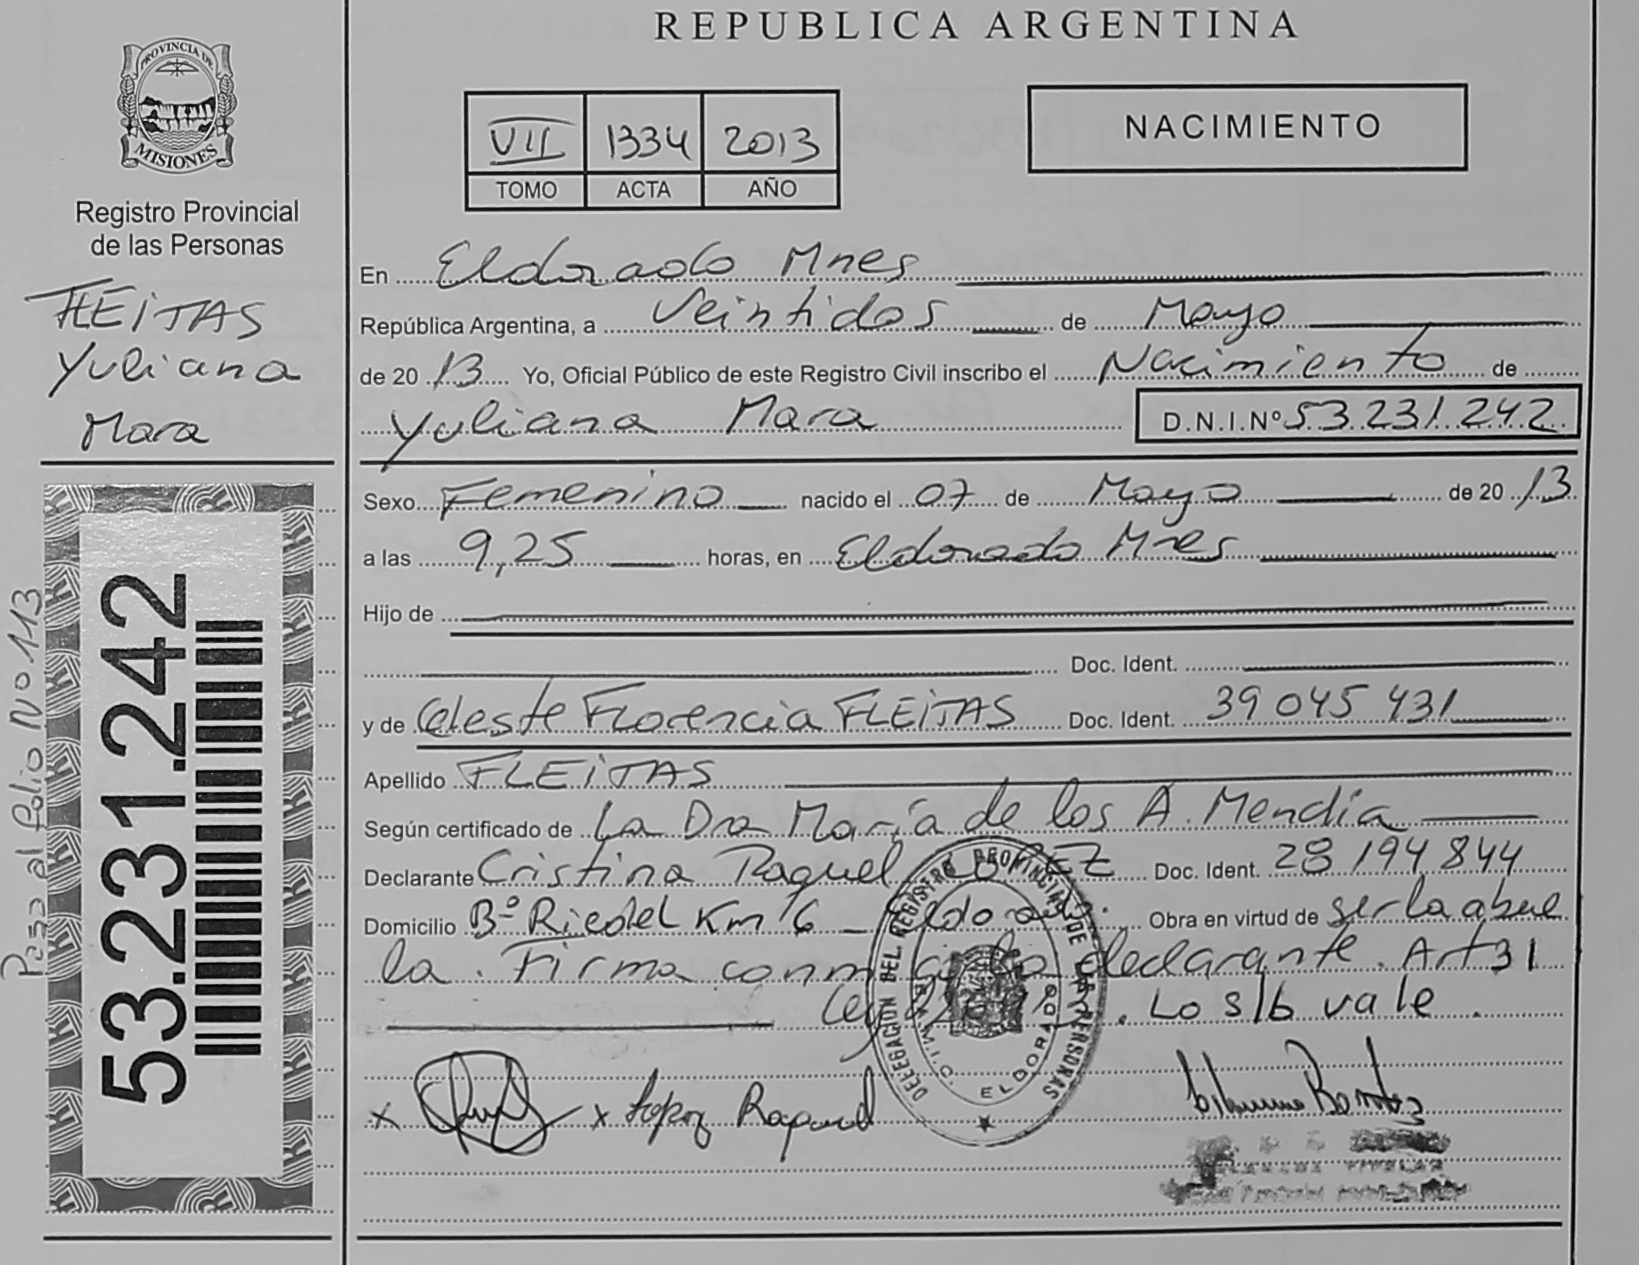 REPUBLICA ARGENTINA
PROVINCIA DE
MISIONES
Registro Provincial
de las Personas
FLEiTAS
Yuliana
Mara
Paso al folio Nº 113
53.231.242
VII 1334 2013
TOMO ACTA AÑO
NACIMIENTO
En Eldorado Mnes
República Argentina, a Veintidos de Mayo
de 20 13 Yo, Oficial Público de este Registro Civil inscribo el Nacimiento de
Yuliana Mara D.N.I.Nº 53.231.242
Sexo Femenino nacido el 07 de Mayo de 20 13
a las 9,25 horas, en Eldorado Mnes
Hijo de
Doc. Ident.
y de Celeste Florencia FLEiTAS Doc. Ident. 39 045 431
Apellido FLEiTAS
Según certificado de La Dra María de los A. Mendia
Declarante Cristina Raquel LOPEZ Doc. Ident. 28 194 844
Domicilio Bº Riedel Km 6 _ Eldorado. Obra en virtud de ser la abue
la. Firma conmigo la declarante. Art 31
Ley . Lo s/b vale.
x x Lopez Raquel
DELEGACION DEL REGISTRO PROVINCIAL DE LAS PERSONAS
ELDORADO